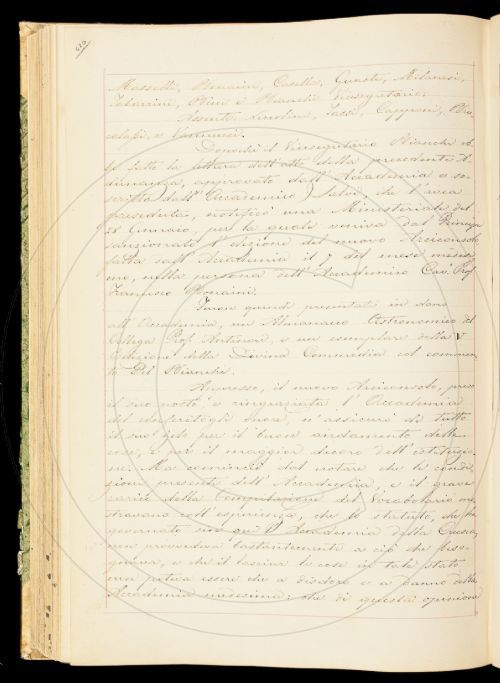 620
Masselli, Bonaini, Casella, Guasti, Milanesi,
Tabarrini, Bini e Bianchi Vicesegretario.
Assenti: Nicolini, Tassi, Capponi, Bru
calassi, e Vannucci.
Dopochè il Vicesegretario Bianchi eb
be fatto la lettura dell'atto della precedente A
dunanza, approvato dall'Accademia e so
scritto dall'Accademico Salvi che l'avea
preseduta, notificò una Ministeriale del
28 Gennaio, per la quale veniva dal Principe
sanzionata l'elezione del nuovo Arciconsolo
fatta dall'Accademia il 7 del mese medesi
mo, nella persona dell'Accademico Cav. Prof.
Francesco Bonaini.
Furon quindi presentati in dono
all'Accademia, un Almanacco Astronomico del
Collega Prof. Antinori, e un esemplare della V
Edizione della Divina Commedia col commen
to del Bianchi.
Appresso, il nuovo Arciconsolo, preso
il suo posto e ringraziata l'Accademia
del conferitogli onore, s'assicurò di tutto
il suo zelo per il buon andamento delle
cose, e per il maggior decoro dell'istituzio
ne. Ma cominciò dal notare che la condi
zione presente dell'Accademia, e il grave
carico della Compilazione del Vocabolario mo
stravano coll'esperienza, che lo statuto, che ha
governato fin qui l'Accademia della Crusca,
non provvedeva bastantemente a ciò che biso
gnava, e che il lasciar le cose in tale stato
non poteva essere che a disdoro e a danno della
Accademia medesima: che di questa opinione